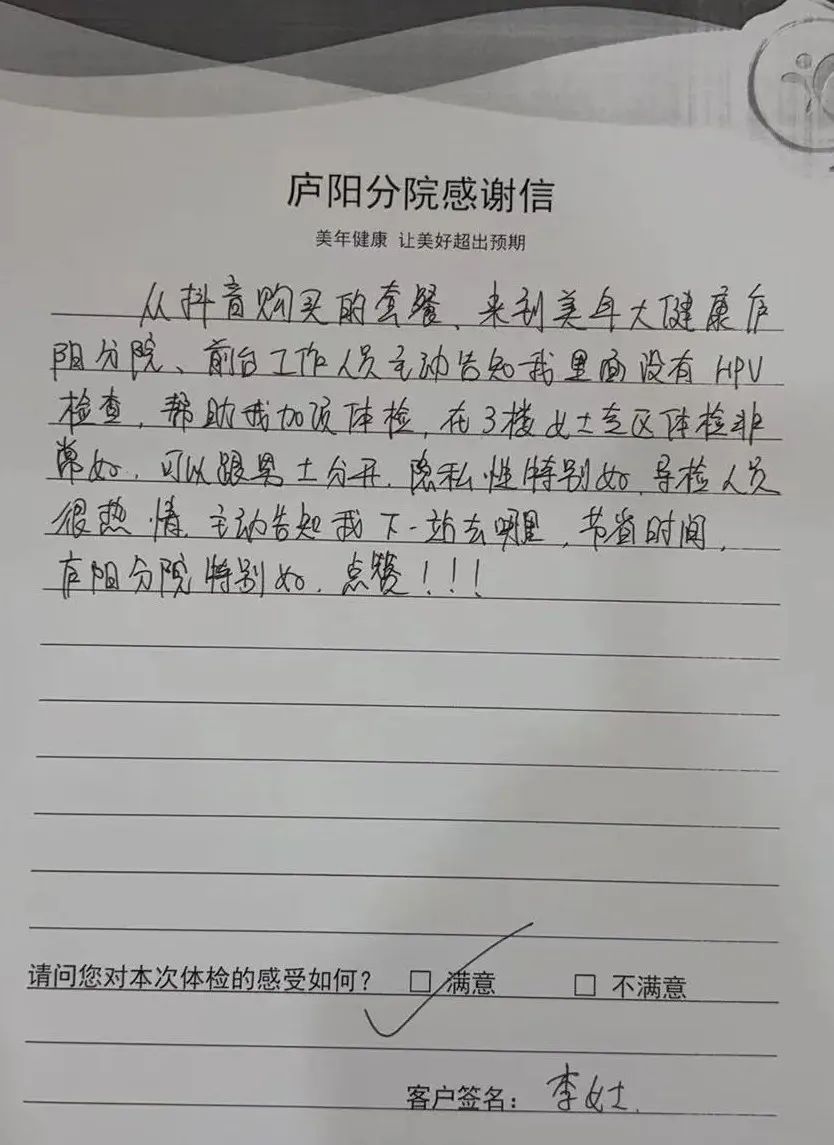 庐阳分院感谢信
美年健康 让美好超出预期
从抖音购买的套餐、来到美年大健康庐
阳分院、前台工作人员主动告知我里面没有HPV
检查,帮助我加项体检,在3楼女士专区体检非
常好,可以跟男士分开,隐私性特别好,导检人员
很热情,主动告知我下一站去哪里,节省时间,
庐阳分院特别好,点赞!!!
请问您对本次体检的感受如何? □ 满意 □ 不满意
客户签名: 李女士.